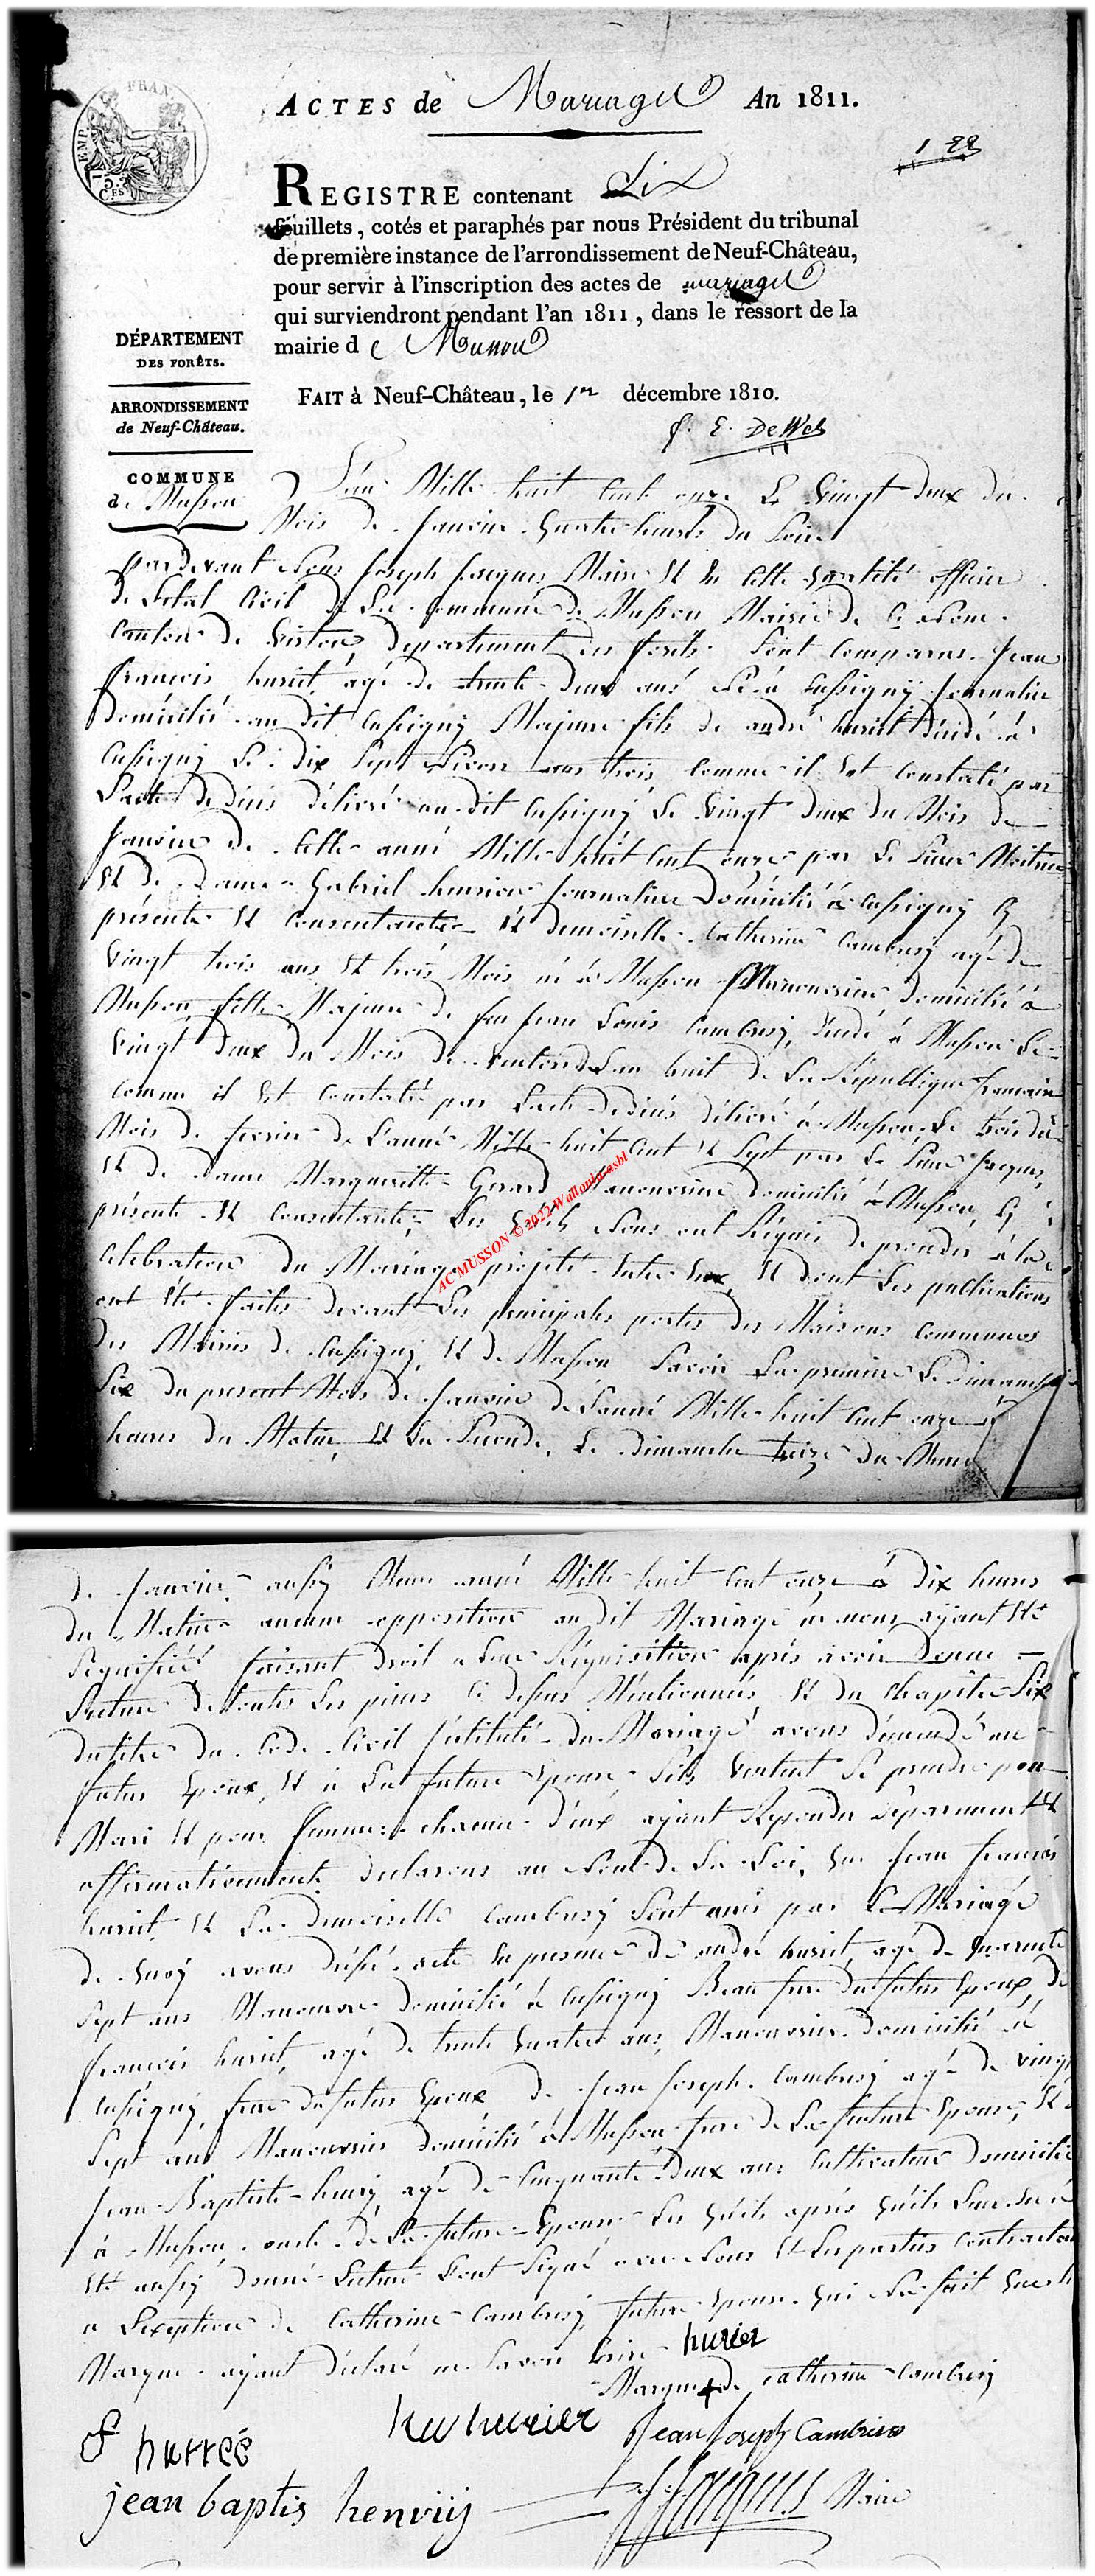 FRAN
TEMP
75 C.
CES
ACTES de Mariages An 1811.
1 er
REGISTRE contenant Six
feuillets, cotés et paraphés par nous Président du tribunal
de première instance de l'arrondissement de Neuf-Château,
pour servir à l'inscription des actes de mariages
qui surviendront pendant l'an 1811, dans le ressort de la
mairie de Musson
DÉPARTEMENT
DES FORÊTS.
ARRONDISSEMENT
de Neuf-Château.
COMMUNE
de Musson
FAIT à Neuf-Château, le 1er décembre 1810.
L'an Mille huit Cent onze Le Vingt deux du
Mois de Janvier quatre heures du Soir
pardevant Nous Joseph Jacques Maire Et En Cette qualité officier
de L'etat Civil de La Commune de Musson Mairie de Ce Nom
Canton de Virton departement des forets Sont Comparus Jean
françois huriet, agé de trente deux ans né à Cussigny Journalier
domicilié au dit Cussigny Majeure fils de andré huriet décédé à
Cussigny Le dix Sept Nivose ans trois Comme il Est Constaté par
L'acte de décés délivré au dit Cussigny Le Vingt deux du Mois de
Janvier de Cette année Mille huit Cent onze par Le Sieur
Et de Dame Gabriel henrion Journaliere Domicilié à Cussigny Cy
présente Et Consentante Et demoiselle Catherine Cambresy agé de
Vingt trois ans Et trois Mois né à Musson Manouvriere domicilié à
Musson, fille Majeure de feu Jean Louis Cambresy, décédé à Musson Le
Vingt deux du Mois de L'an huit de La République francaise
Comme il Est Constaté par L'acte de décés délivré à Musson, Le trois du
Mois de de L'année Mille huit Cent Et Sept par Le Sieur Jacques,
Et de dame Margueritte Gerard Manouvriere domicilié à Musson, Cy
présente Et Consentante, Les quels Nous ont Réquis de proceder à la
Celebration du Mariage projeté Entre Eux, Et dont Les publications
ont Eté faites devant Les principales portes des Maisons Communes
des Mairies de Cussigny, Et de Musson Savoir La premiere Le Dimanche
Six du present Mois de Janvier de L'année Mille huit Cent onze à
heures du Matin, Et La Seconde, Le Dimanche treize du Meme
AC MUSSON © 2022 Wallonia asbl
de Janvier aussy Meme année Mille huit Cent onze à Dix heures
du Matin aucune opposition au dit Mariage ne nous ayant Eté
Signifiée faisant droit a Leur Réquisition après avoir Donné
Lecture de toutes Les pieces Ci dessus Mentionnées, Et du chapitre Six
du titre du Code Civil Intitulé du Mariage avons demandé au
futur Epoux, Et à La future Epouse S'ils Veulent Se prendre pour
Mari Et pour femme chacun d'eux ayant Repondu Séparement Et
affirmativement declarons au Nom de La Loi, que Jean francois
huriet, Et La demoiselle Cambresy Sont unis par Le Mariage
de quoy avons dressé acte En presence de andré huriet, agé de quarante
Sept ans Manouvre domicilié à Cussigny Beau frere du futur Epoux, de
francois huriet, agé de trente quatre ans, Manouvrier domicilié à
Cussigny, frere du futur Epoux de Jean Joseph Cambresy agé de vingt
Sept ans Manouvrier domicilié à Musson frere de La future Epouse, Et de
Jean Baptiste henry agé de Cinquante deux ans Cultivateur domicilié
à Musson oncle de La future Epouse Les quels après qu'ils Leur En a
Eté aussy donné Lecture L'ont Signé avec Nous Et Les parties Contractantes
a L'exeption de Catherine Cambresy future Epouse qui La fait que
Marque ayant déclaré ne Savoir Ecrire
hurier
Marque + de Catherine Cambresy
hurier
Jean Joseph Cambrisis
f hurrée
jean baptis henriy
J. J. Jacques Maire